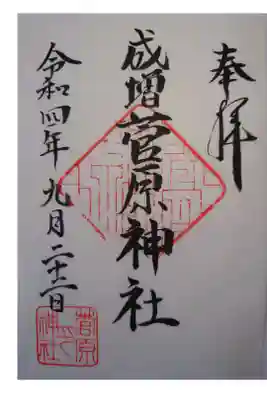 奉拝
成増菅原神社
令和四年九月二十二日
菅原
神社